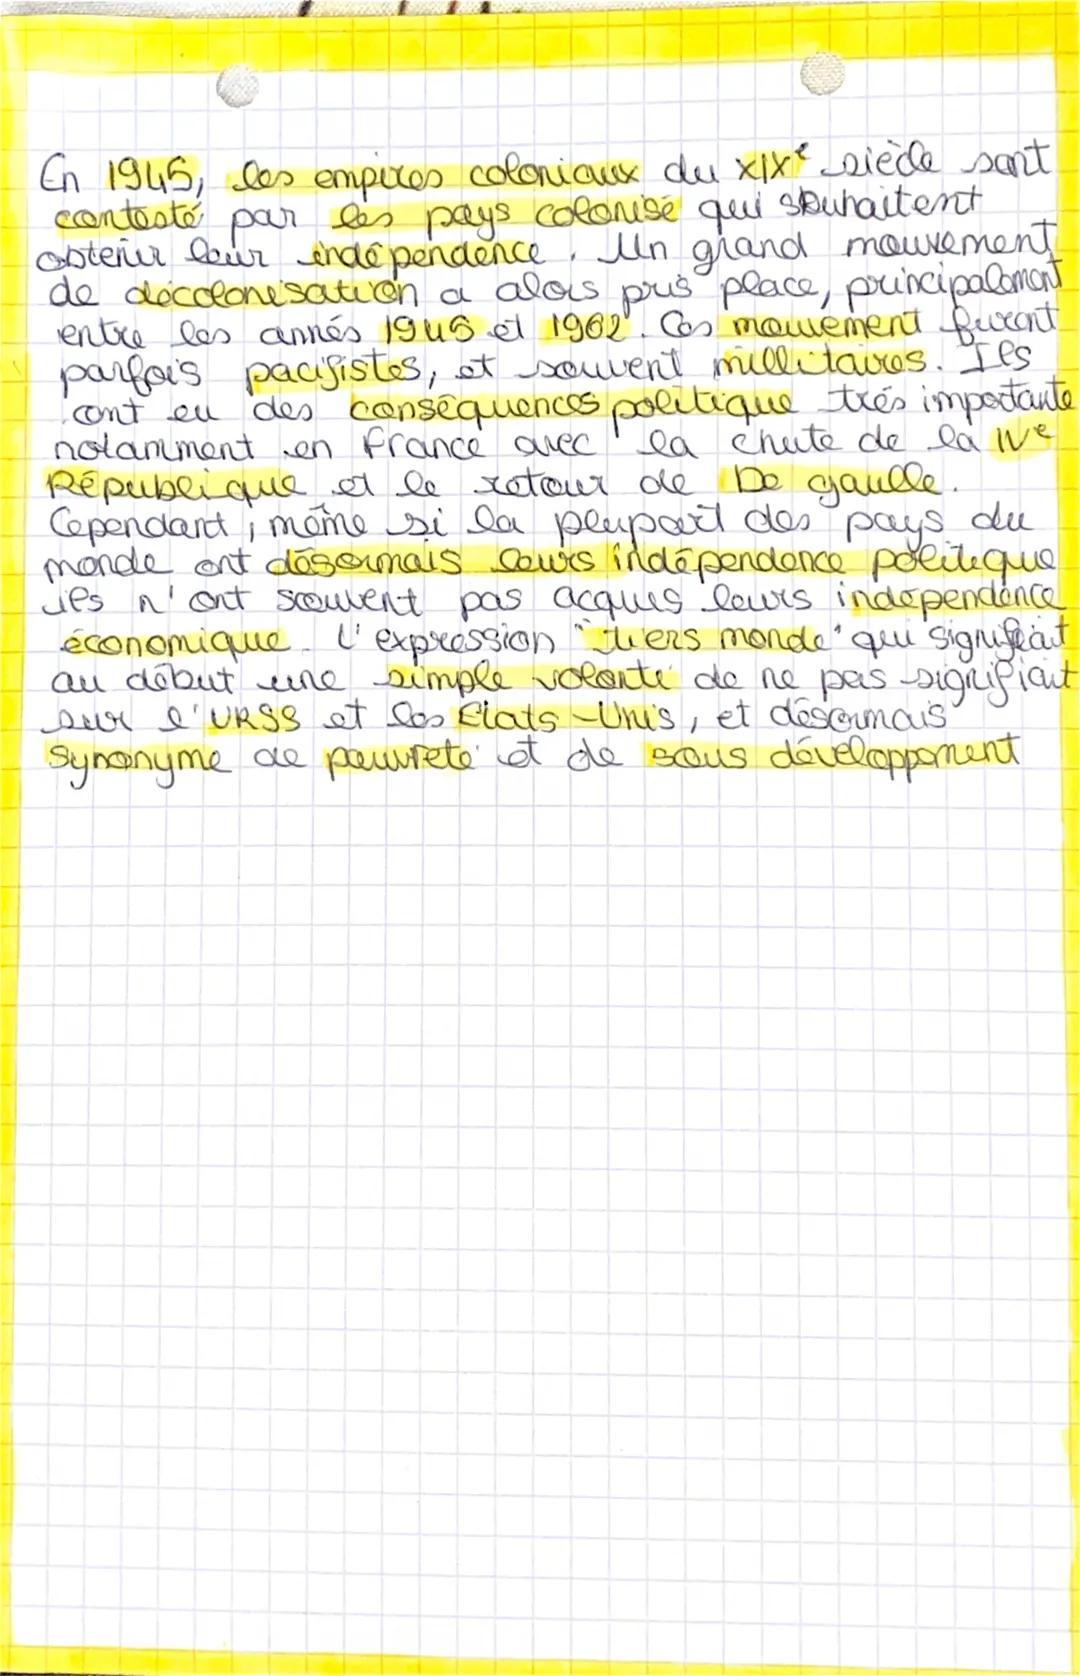 En 1945, les empires coloniaux du XIXe siècle sont
contesté par les pays colonisé qui souhaitent
obtenir leur indépendence. Un grand mouvement
de décolonisation a alors pris place, principalement
entre les annés 1945 et 1962. Ces mouvement furent
parfois pacifistes, et souvent millitaires. Ils
ont eu des conséquences politique très importante
notamment en France avec la chute de la IVe
République et le retour de De gaulle.
Cependant, même si la plupart des pays du
monde ont désormais leurs indépendance politique
ils n'ont souvent pas acquis leurs indépendance
économique. L'expression "tiers monde" qui signifiait
au début une simple volonté de ne pas signifiait
sur l'URSS et les Etats-Unis, et désormais
synonyme de pauvreté et de sous développement